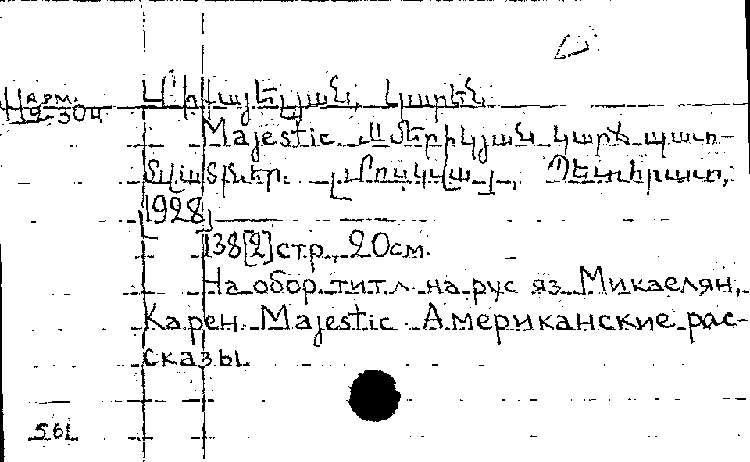 Арм.
19-304
Միքայելյան, Կարեն.
Majestic. Ամերիկյան կարճ պատ-
մվածքներ. Մոսկվա, Պետհրատ,
1928,
138[2] стр., 20 см.
На обор. титл. на рус. яз. Микаелян,
Карен. Majestic. Американские рас-
сказы.
561